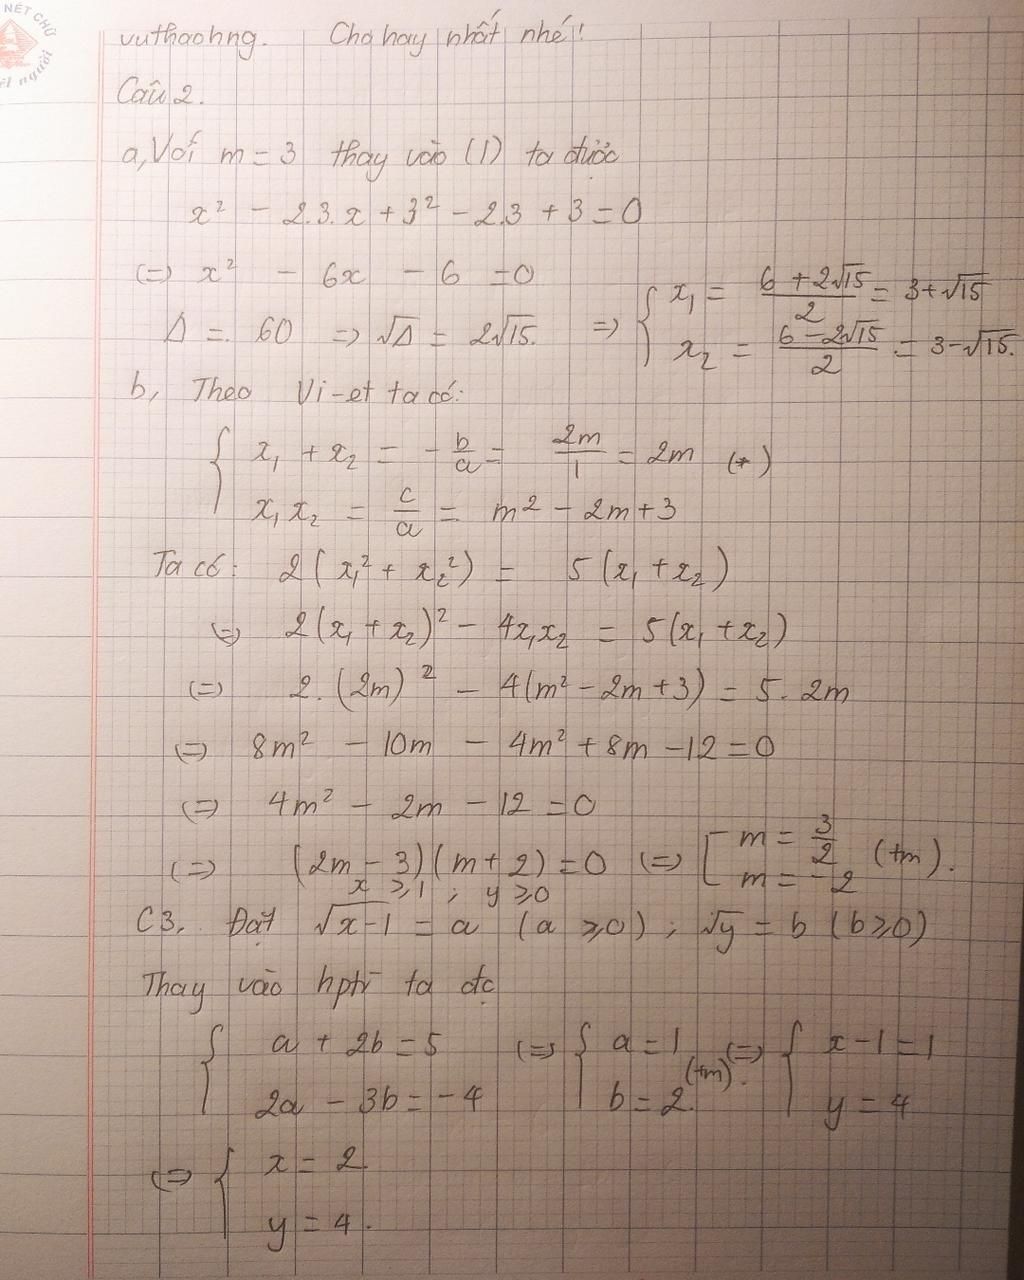 NÉT CHỮ
nết người
vuthaohng. Cho hay nhất nhé!
Câu 2.
a, Với m = 3 thay vào (1) ta được
x² - 2.3.x + 3² - 2.3 + 3 = 0
(=) x² - 6x - 6 = 0
Δ = 60 => √Δ = 2√15. => { x₁ = (6 + 2√15)/2 = 3+√15
x₂ = (6 - 2√15)/2 = 3-√15.
b, Theo Vi-et ta có:
{ x₁ + x₂ = -b/a = 2m/1 = 2m (*)
x₁x₂ = c/a = m² - 2m + 3
Ta có: 2(x₁² + x₂²) = 5(x₁ + x₂)
(=) 2(x₁ + x₂)² - 4x₁x₂ = 5(x₁ + x₂)
(=) 2.(2m)² - 4(m² - 2m + 3) = 5.2m
(=) 8m² - 10m - 4m² + 8m - 12 = 0
(=) 4m² - 2m - 12 = 0
(=) (2m - 3)(m + 2) = 0 (=) [ m = 3/2
m = -2 (tm).
x ≥ 1 ; y ≥ 0
C3. Đặt √x-1 = a (a ≥ 0) ; √y = b (b ≥ 0)
Thay vào hptr ta đc
{ a + 2b = 5 (=) { a = 1 (=) { x - 1 = 1
2a - 3b = -4 b = 2 (tm). y = 4
(=) { x = 2
y = 4.